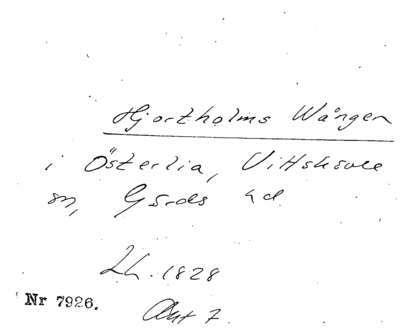 Hjortholms Wången
i Österlia, Vittskövle
sn, Gärds hd.
Lh. 1828
Nr 7926.
Akt 7.